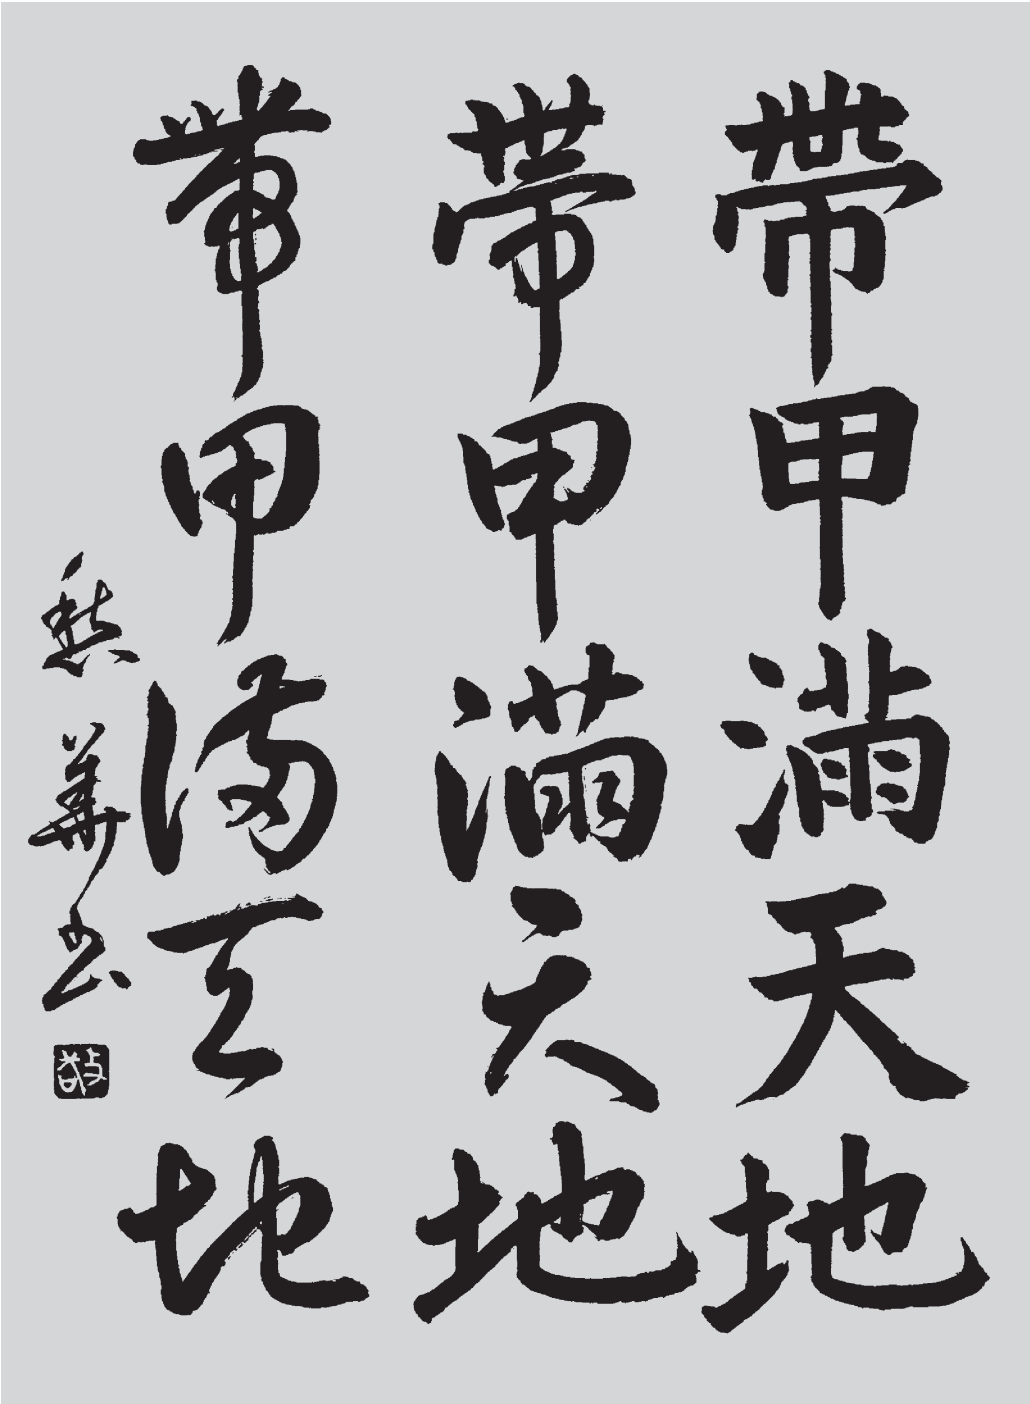 帶甲滿天地
帶甲滿天地
帶甲滿天地
華書
敬